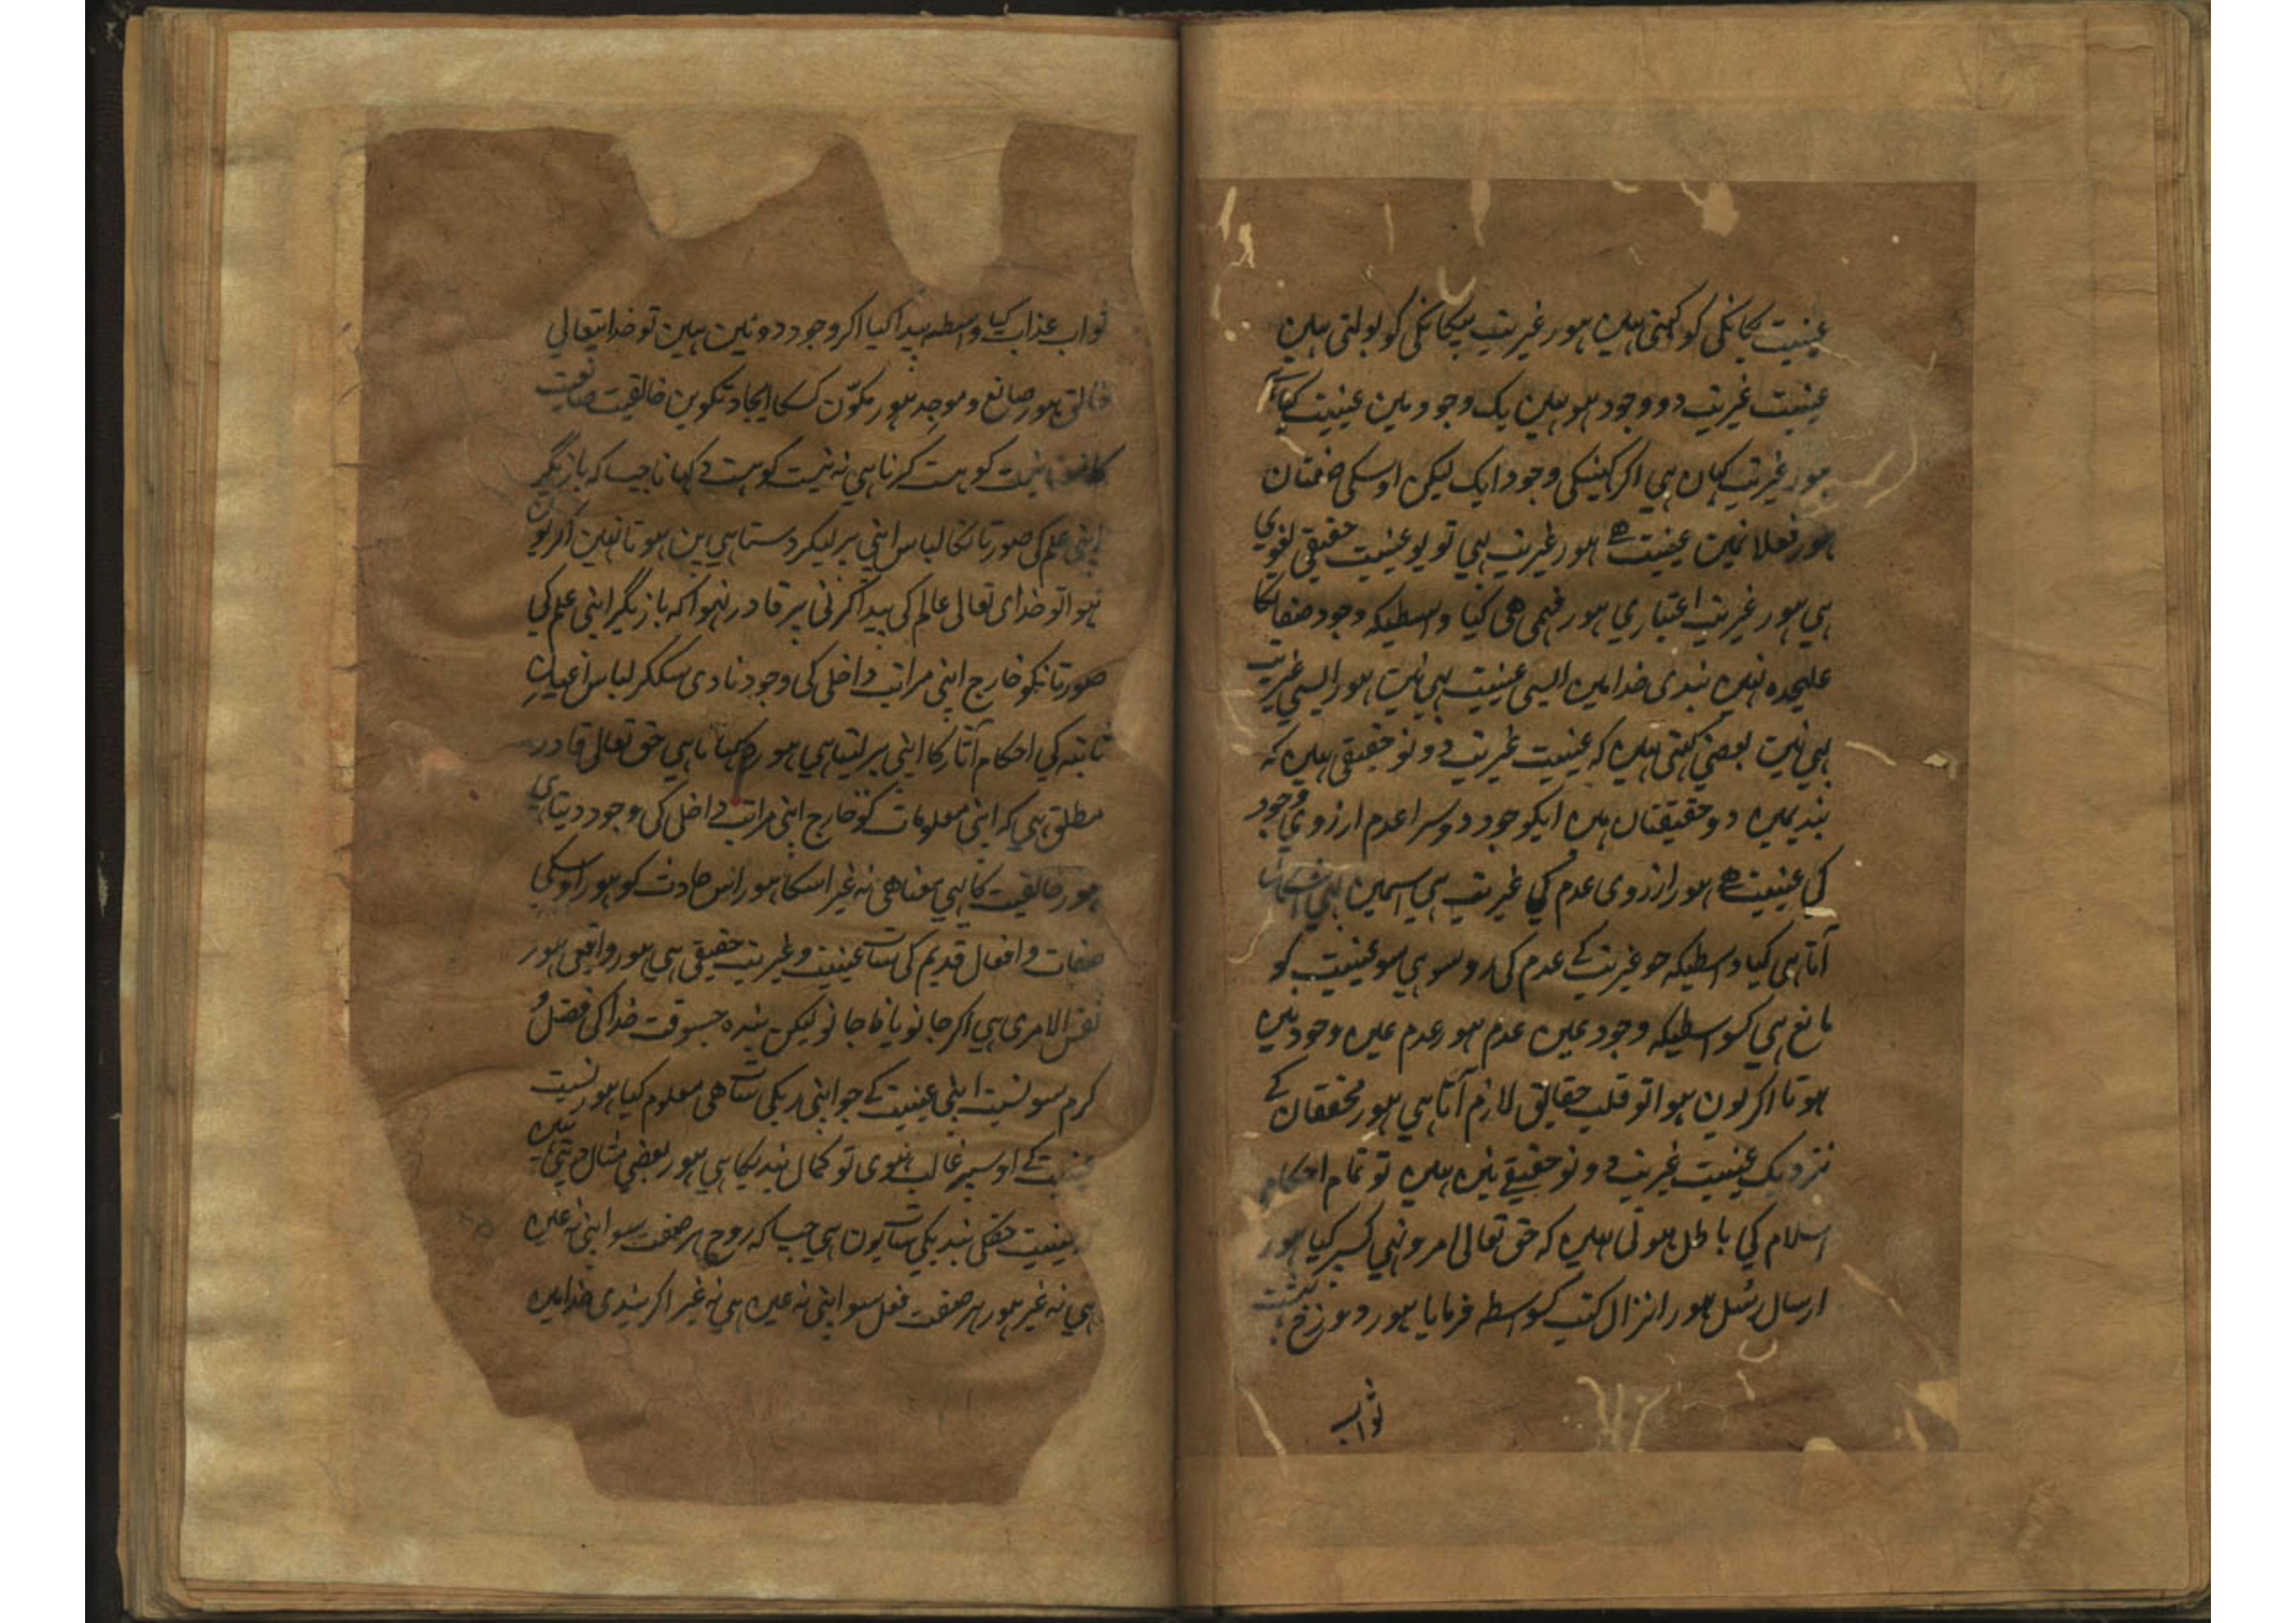 عینیت یکانکی کو کہتی ہیں ہور غیریت بیکانکی کو بولتی ہیں
عینیت غیریت دو وجود ہو ہیں یک وجود میں عینیت کیا
ہور غیریت کہاں ہی اکر کہینکی وجود ایک لیکن اوسکی صفتان
ہور فعلا نمیں عینیت ہے ہور غیریت ہی تو یو عینیت حقیقی لغوی
ہی ہور غیریت اعتباری ہور فہمی ھی کیا واسطیکہ وجود صفاتکا
علیحدہ نہیں بندی خدا میں ایسی عینیت بہی نہیں ہور ایسی غیریت
بہی نہیں بعضی کہتی ہیں کہ عینیت غیریت دونو حقیقی ہیں کہ
بندیمیں دو حقیقتاں ہیں ایکو جود دوسرا عدم ارزوی وجود
کی عینیت ہے ہور ازروی عدم کی غیریت ہی اسمیں بہی
آتا ہی کیا واسطیکہ جو غیریت کے عدم کی روسو ہی سو عینیت کو
مانع ہی کسواسطیکہ وجود عین عدم ہور عدم عین وجود نہیں
ہوتا اکر یوں ہوا تو قلب حقایق لازم آتا ہی ہور محققان کے
نزدیک عینیت غیریت دونو حقیقے نہیں ہیں تو تمام احکام
اسلام کی باطل ہوتی ہیں کہ حق تعالی امر و نہی کسپر کیا ہور
ارسال رُسل ہور انزال کتب کسواسطہ فرمایا ہور دوزخ بہشت
ثواب
ثواب عذاب کیا واسطہ پیدا کیا اکر وجود دو نہیں ہیں تو خدایتعالی
خالق ہور صانع و موجد ہور مکوّن کسکا ایجاد تکوین خالقیت صانعیت
نیست کو ہست کرنا ہی نہ نیست کو ہست دکہانا جیسا کہ بازیگر
اپنی علم کی صورتانکا لباس اپنی پر لیکر دستا ہی پن ہوتا نہیں اکر یوں
ہوا تو خدای تعالی عالم کی پیدا کرنی پر قادر نہوا کہ بازیگر اپنی علم کی
صورتانکو خارج اپنی مراتب داخل کی وجود نا دی سککر لباس اعیان
ثابتہ کی احکام آثار کا اپنی پر لیتا ہی ہور دکہاتا ہی حق تعالی قادر
مطلق ہی کہ اپنی معلومات کو خارج اپنی مراتب داخل کی وجود دیتا ہی
ہور خالقیت کا یہی معنا ھی نہ غیر اسکا ہور اس حادث کو ہور اوسکی
صفات و افعال قدیم کی سات عینیت و غیریت حقیقی ہی ہور واقعی ہور
نفس الامری ہی اکر جانو یا نا جانو لیکن بندہ جسوقت خدا کی فضل
کرم سو نسبت اپنی عینیت کے جو اپنی ربکی سات ھی معلوم کیا ہور نسبت
عینیت کے اوسپر غالب ہوی تو کمال بندیکا ہی ہور بعضی مثال دیتی ہیں
عینیت حقکی بندیکی سات یوں ہی جیسا کہ روح ہر صفت سو اپنی نہ عین
ہی نہ غیر ہور ہر صفت فعل سو اپنی نہ عین ہی نہ غیر اکر بندی خدا میں